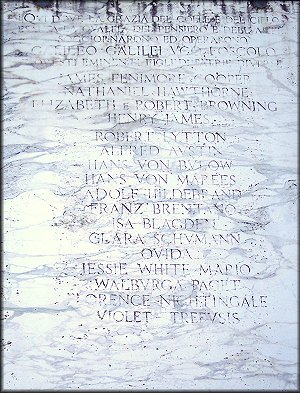 LA GRAZIA DEL COLLE E DEL CIELO
DEL PENSIERO E DELL'ARTE
SOGGIORNARONO ED OPERARONO
GALILEO GALILEI
QUESTI EMINENTI FIGLI DI TERRE DIVERSE
JAMES FENIMORE COOPER
NATHANIEL HAWTHORNE
ELIZABETH E ROBERT BROWNING
HENRY JAMES
ROBERT LYTTON
ALFRED AVSTIN
HANS VON BVLOW
HANS VON MARÉES
ADOLF HILDEBRAND
FRANZ BRENTANO
ISA BLAGDEN
CLARA SCHVMANN
OVIDA
JESSIE WHITE MARIO
WALBVRGA PAGET
FLORENCE NIGHTINGALE
VIOLET TREFVSIS